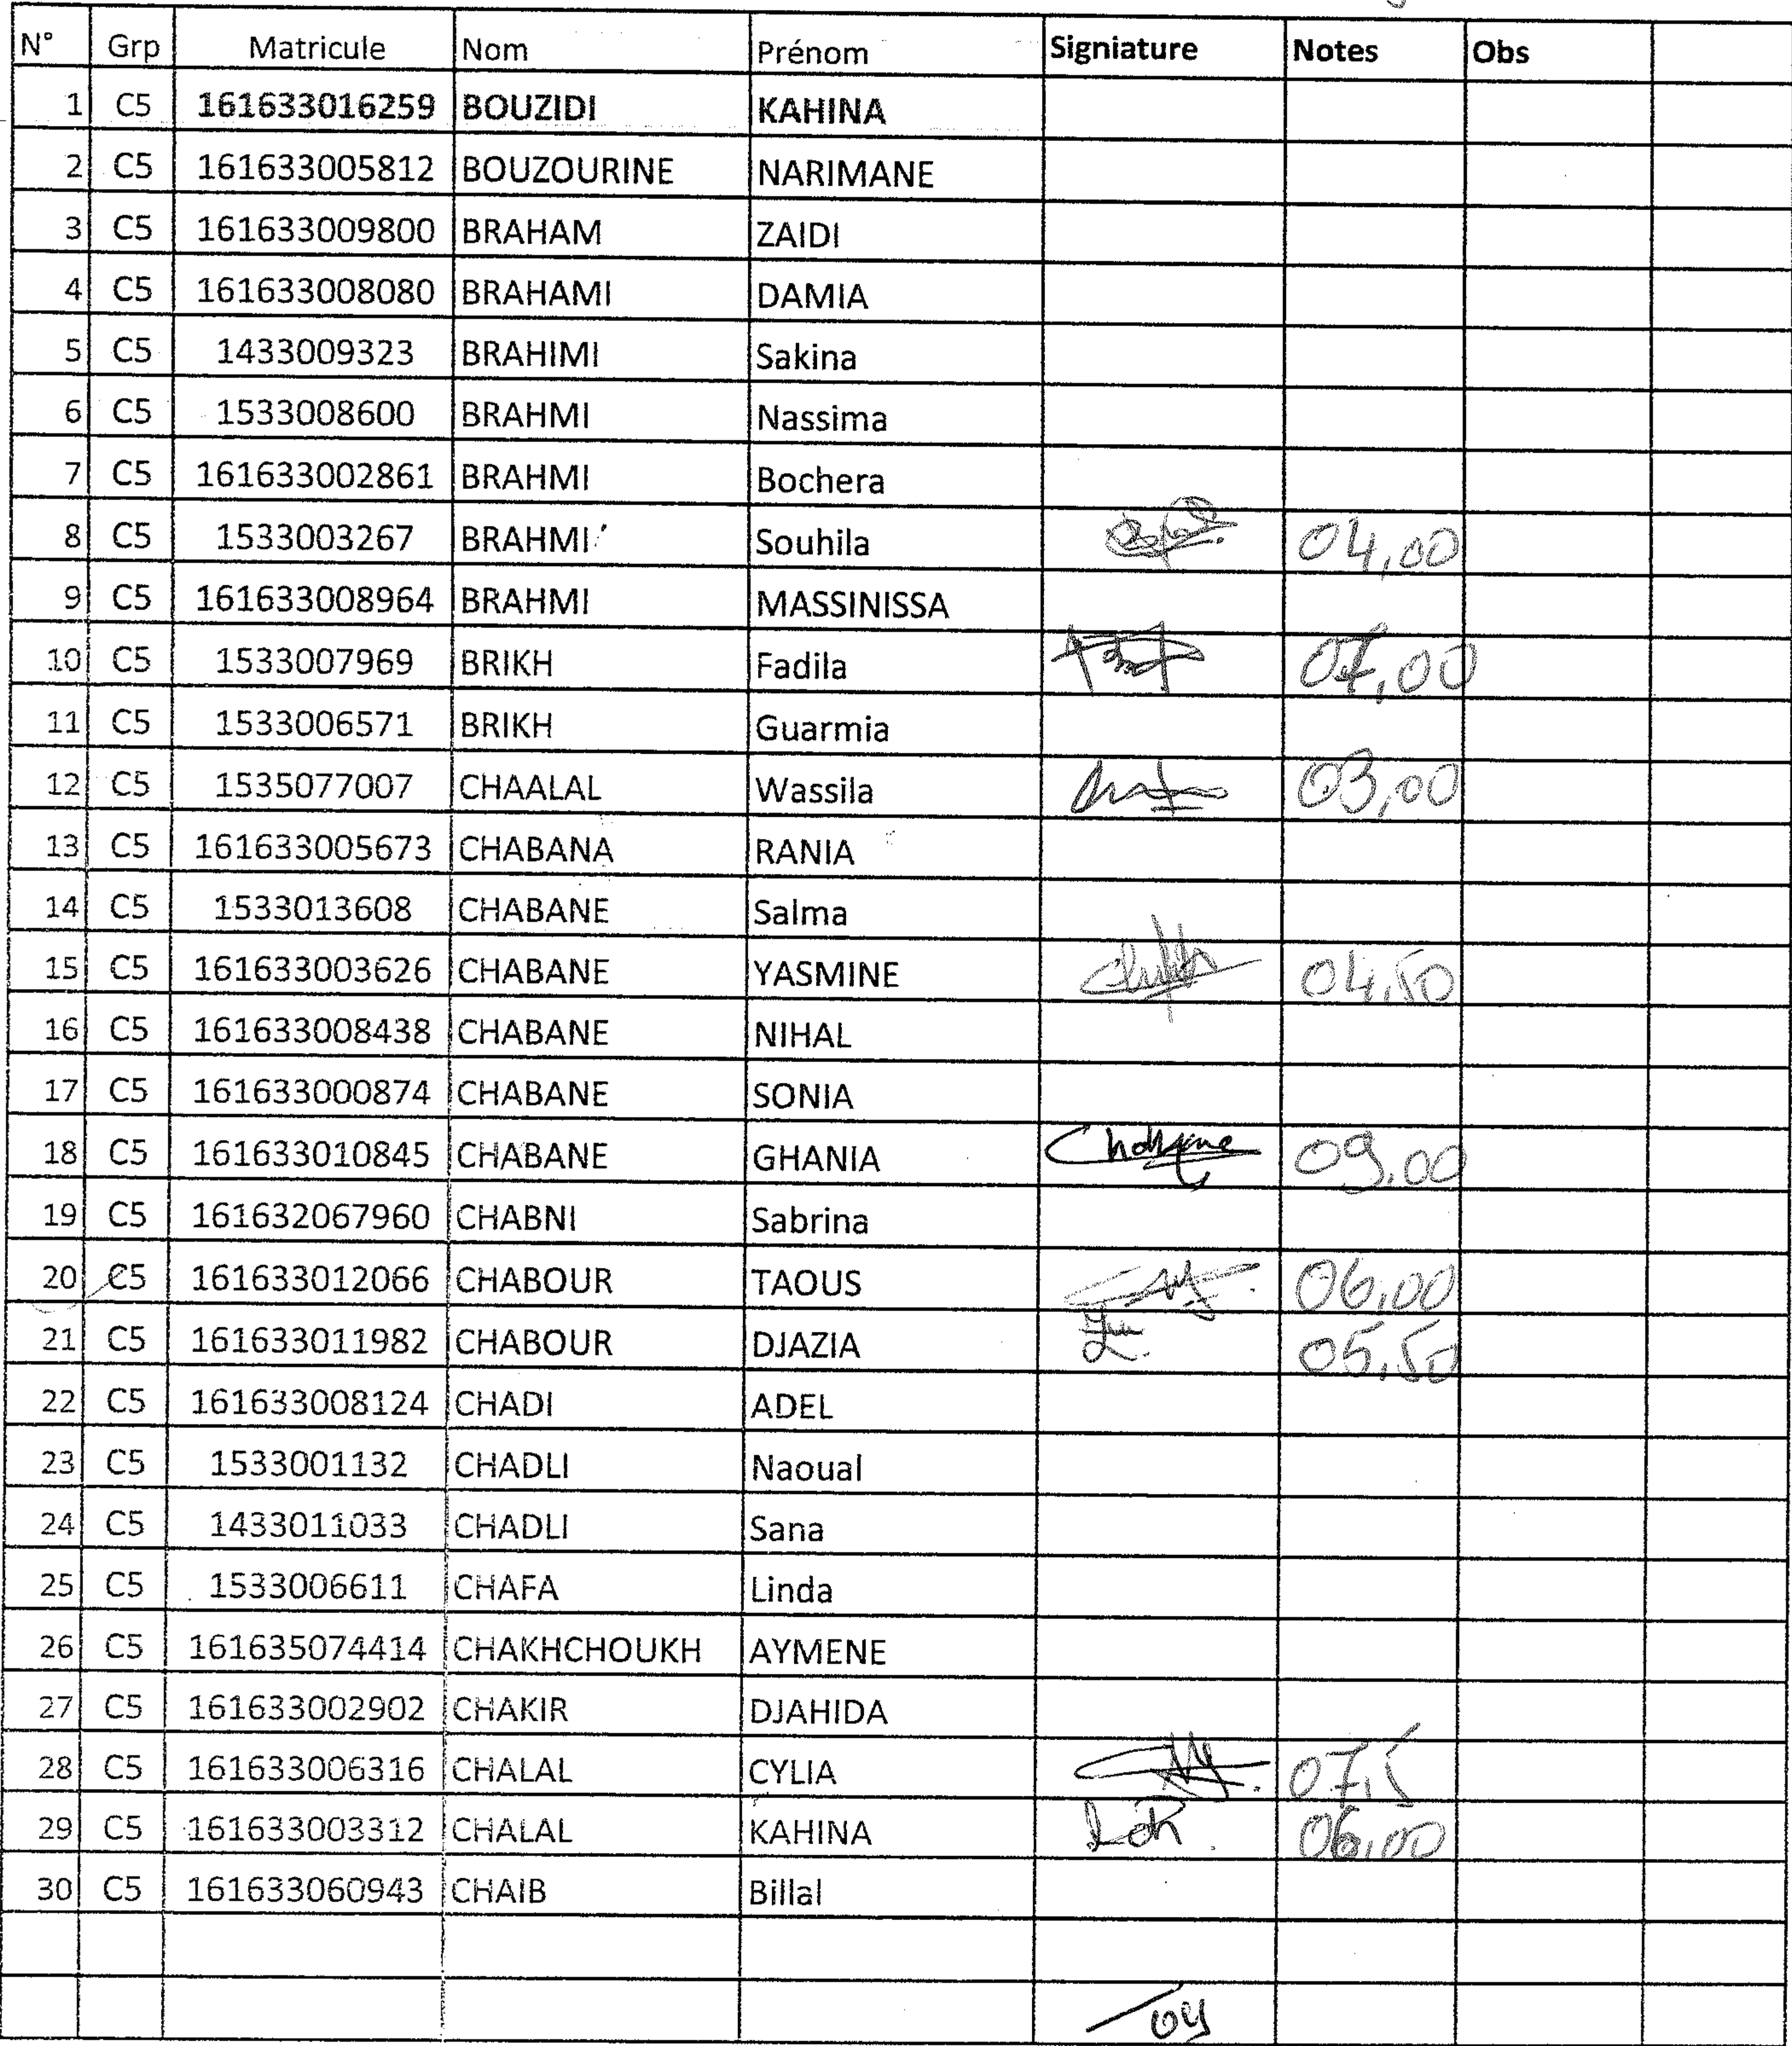 N° Grp Matricule Nom Prénom Signiature Notes Obs
1 C5 161633016259 BOUZIDI KAHINA
2 C5 161633005812 BOUZOURINE NARIMANE
3 C5 161633009800 BRAHAM ZAIDI
4 C5 161633008080 BRAHAMI DAMIA
5 C5 1433009323 BRAHIMI Sakina
6 C5 1533008600 BRAHMI Nassima
7 C5 161633002861 BRAHMI Bochera
8 C5 1533003267 BRAHMI Souhila 04,00
9 C5 161633008964 BRAHMI MASSINISSA
10 C5 1533007969 BRIKH Fadila 07,00
11 C5 1533006571 BRIKH Guarmia
12 C5 1535077007 CHAALAL Wassila 03,00
13 C5 161633005673 CHABANA RANIA
14 C5 1533013608 CHABANE Salma
15 C5 161633003626 CHABANE YASMINE 04,50
16 C5 161633008438 CHABANE NIHAL
17 C5 161633000874 CHABANE SONIA
18 C5 161633010845 CHABANE GHANIA 09,00
19 C5 161632067960 CHABNI Sabrina
20 C5 161633012066 CHABOUR TAOUS 06,00
21 C5 161633011982 CHABOUR DJAZIA 05,50
22 C5 161633008124 CHADI ADEL
23 C5 1533001132 CHADLI Naoual
24 C5 1433011033 CHADLI Sana
25 C5 1533006611 CHAFA Linda
26 C5 161635074414 CHAKHCHOUKH AYMENE
27 C5 161633002902 CHAKIR DJAHIDA
28 C5 161633006316 CHALAL CYLIA 07,5
29 C5 161633003312 CHALAL KAHINA 06,00
30 C5 161633060943 CHAIB Billal